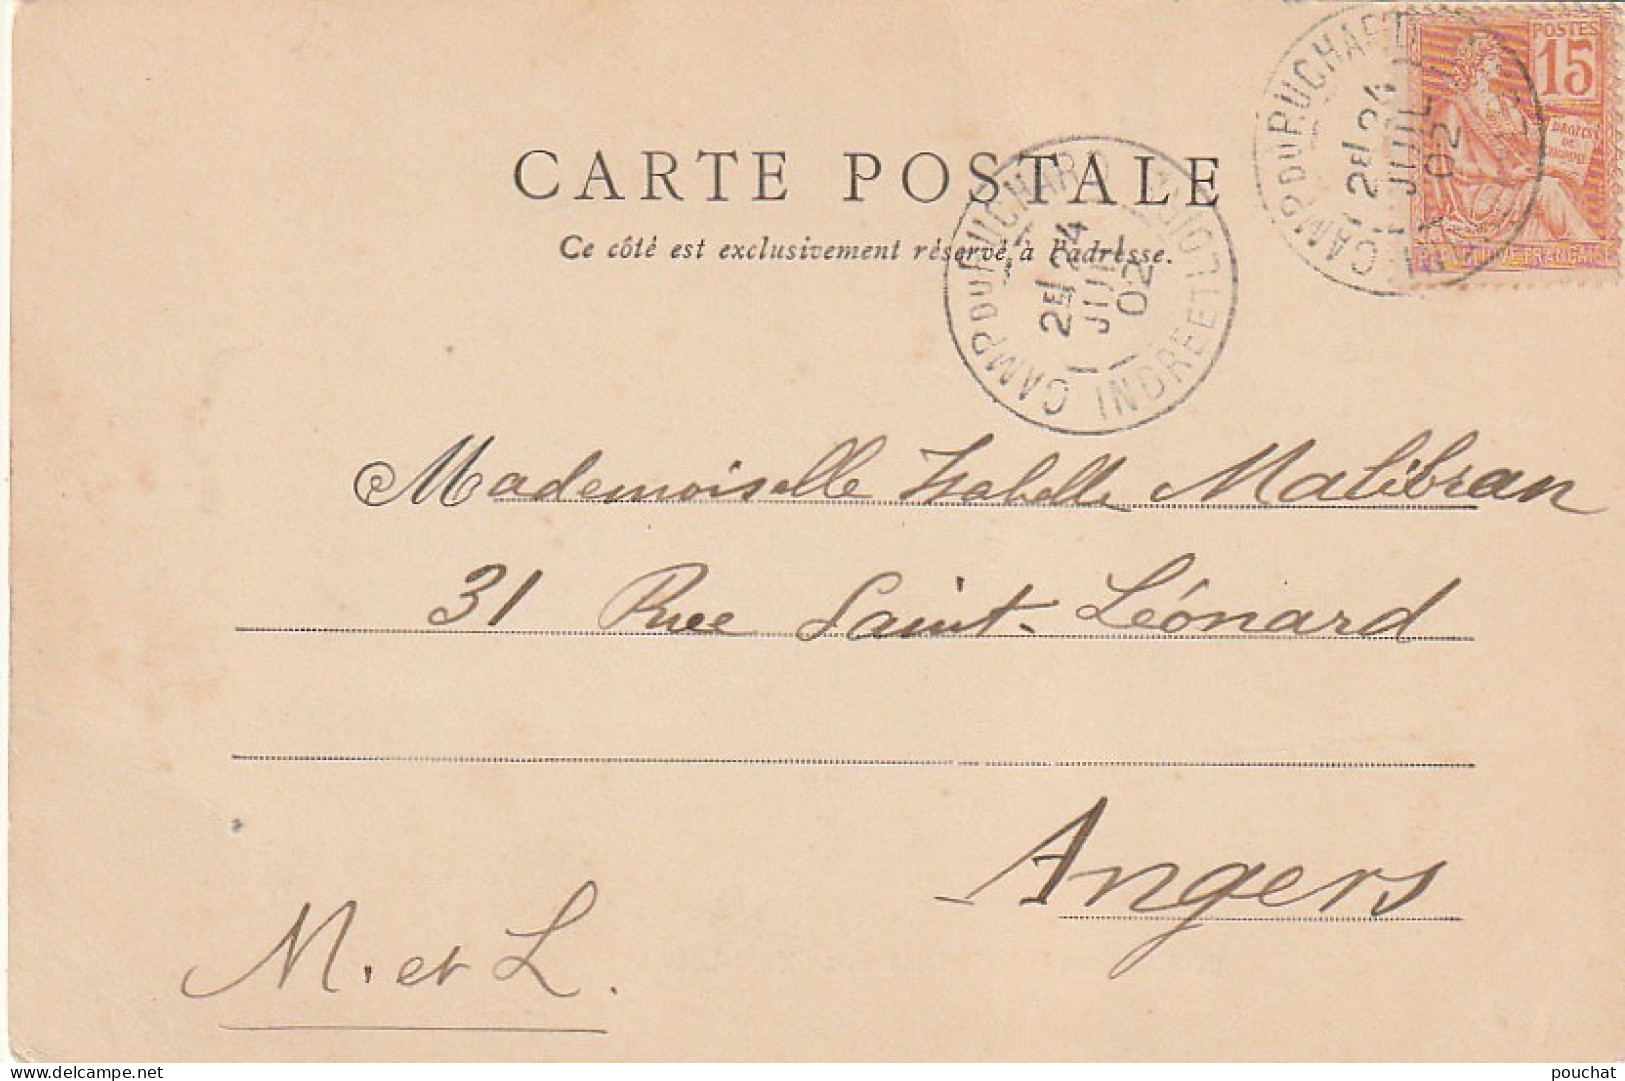 CARTE POSTALE
Ce côté est exclusivement réservé à l'adresse.
CAMP DU RUCHARD INDRE ET LOIRE
2E 24
JUIL
02
CAMP DU RUCHARD
2E 24
JUIL
02
POSTES
15
DROITS
DE
L'HOMME
REPUBLIQUE FRANÇAISE
Mademoiselle Isabelle Malibran
31 Rue Saint-Léonard
Angers
M. et L.
delcampe.net
pouchat